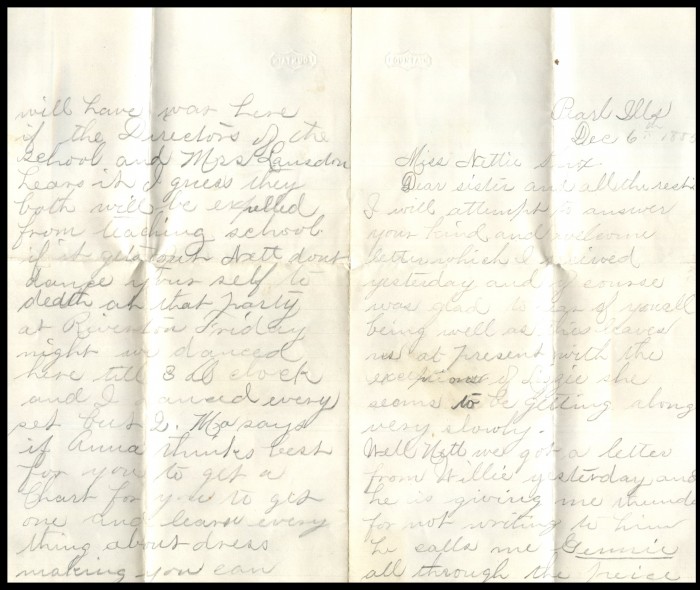 will have war here
if the Directors of the
school and Mrs Lansdon
hears it I guess they
both will be expelled
from teaching school
if it gets out Nett dont
dance your self to
dedth at that party
at Riverton Friday
night we danced
here till 3 O clock
and I danced every
set but 2. Ma says
if Anna thinks best
for you to get a
Chart for you to get
one and learn every
thing about dress
making you can
Pearl Ills
Dec 6th
Miss Nettie
Dear sister and all the rest
I will attempt to answer
your kind and welcome
letter which I recieved
yesterday and of course
was glad to hear of you all
being well as this leaves
us at present with the
exceptions of Lizzie she
seems to be getting along
very slowly.
Well Nett we got a letter
from Willie yesterday and
he is giving me thunder
for not writing to him
he calls me Gennie
all through the peice